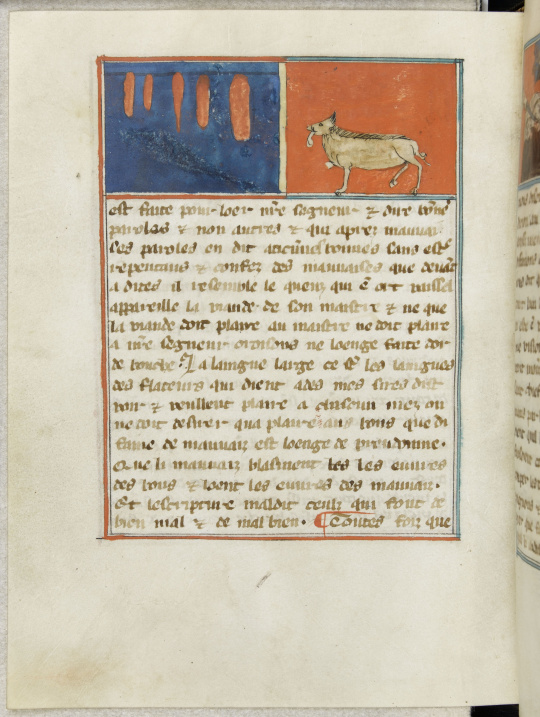 est faite pour loer nre segneur & dire bones
paroles & non autres & qui apres mauvai
ses paroles en dit aucunes bonnes sans estre
repentans & confez des mauvaises que devāt
a dites il resemble le queu qui ē ort vaissel
appareille la viande de son maistre & ne que
la viande doit plaire au maistre ne doit plaire
a nre segneur orisons ne loenge faite dor
de bouche La laingue large ce st les laingues
des flateurs qui dient ades mes sires dist
voir & veullent plaire a chascun mez on
ne doit desirer qua plaire aus bons que di
fame de mauvaiz est loenge de preudomme.
Que li mauvaiz blasment les euvres
des bons & loent les euvres des mauvaiz.
Et lescripture maldit ceuls qui font de
bien mal & de mal bien. Toutes foiz que